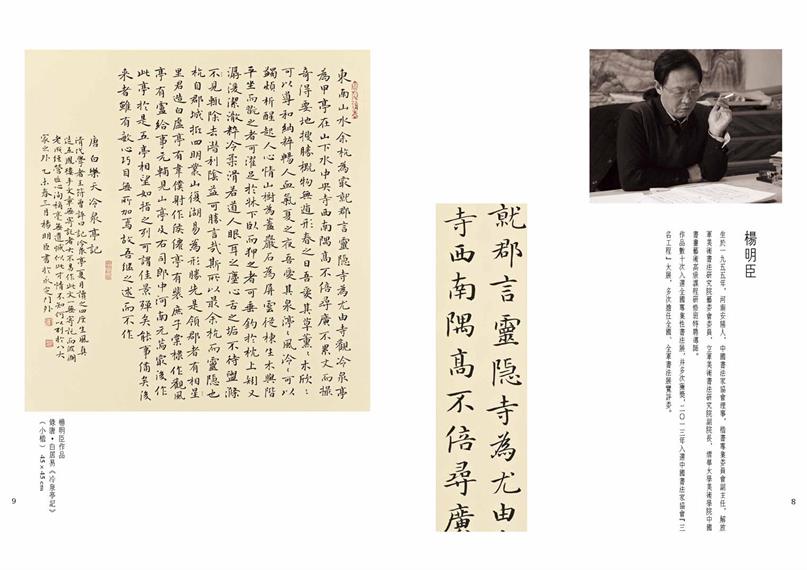 楊明臣
生於一九五五年，河南安陽人。中國書法家協會理事，楷書專業委員會副主任，解放
軍美術書法研究院藝委會委員、空軍美術書法研究院副院長，清華大學美術學院中國
書畫藝術高級課程研修班特聘導師。
作品數十次入選全國專業性書法展，并多次獲獎，二〇一三年入選中國書法家協會『三
名工程』大展，多次擔任全國、全軍書法展覽評委。
就郡言靈隱寺為尤由
寺西南隅高不倍尋廣
8
東南山水余杭為最就郡言靈隱寺為尤由寺觀冷泉亭
為甲亭在山下水中央寺西南隅高不倍尋廣不累丈而撮
奇得要地搜勝概物無遁形春之日吾愛其草薰〻木欣〻
可以導和納粹暢人血氣夏之夜吾愛其泉渟〻風泠〻可以
蠲煩析酲起人心情山樹為蓋巖石為屏雲從棟生水與階
平坐而翫之者可濯足於牀下臥而狎之者可垂釣於枕上矧又
潺湲潔澈粹冷柔滑若道人眼耳之塵心舌之垢不待盥滌
不見輒除去潛利陰益可勝言哉斯所以最余杭而靈隱也
杭自郡城抵四明叢山復湖易為形勝先是領郡者有相
里君造白虛亭有韋僕射作候僊亭有裴庶子棠棣作觀風
亭有盧給事元輔見山亭及右司郎中河南元藇最後作
此亭於是五亭相望如指之列可謂佳景殫矣餘事備矣後
來者雖有敏心巧目無所加焉故吾繼之述而不作
唐白樂天冷泉亭記
清代學者王符曾評曰記冷泉亭夏月情
家之外乙未春三月楊明臣書於永定門外
楊明臣作品
錄唐·白居易《冷泉亭記》
（小楷） 45×45 cm
9